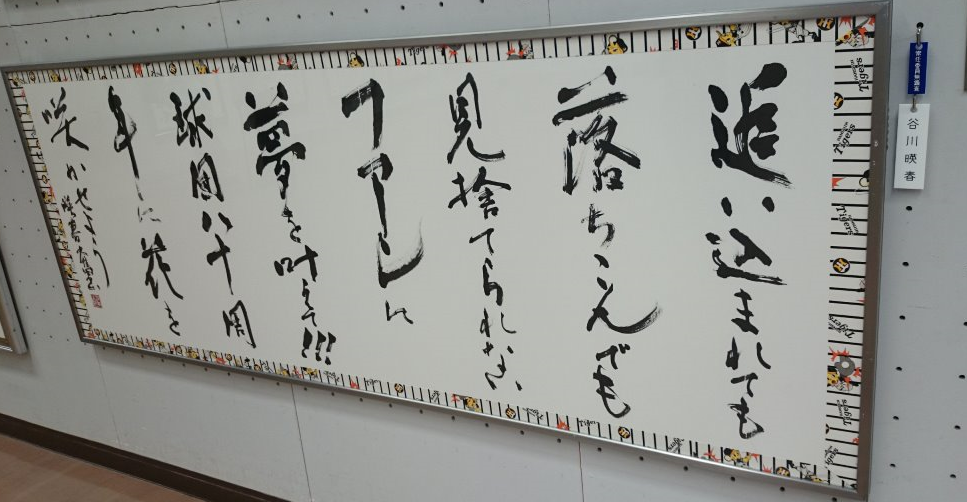 追い込まれても
落ちこんでも
見捨てられない
フアーしに
夢を叶えて!!!
球団八十周
年に花を
咲かせよう
谷川暎春
Tigers